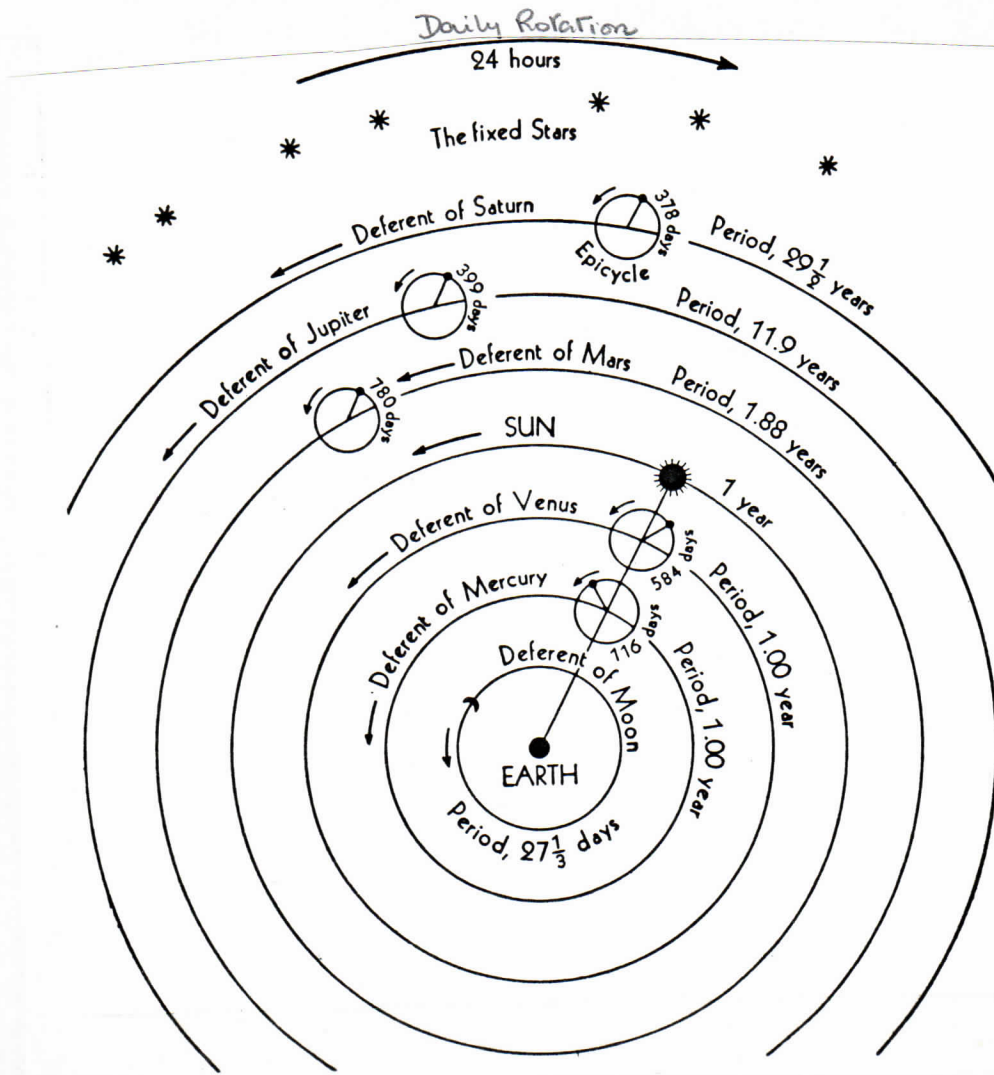 Daily Rotation
24 hours
The fixed Stars
Deferent of Saturn
378 days
Epicycle
Period, 29 1/2 years
Deferent of Jupiter
399 days
Period, 11.9 years
Deferent of Mars
780 days
Period, 1.88 years
SUN
1 year
Deferent of Venus
584 days
Period, 1.00 year
Deferent of Mercury
116 days
Period, 1.00 year
Deferent of Moon
EARTH
Period, 27 1/3 days